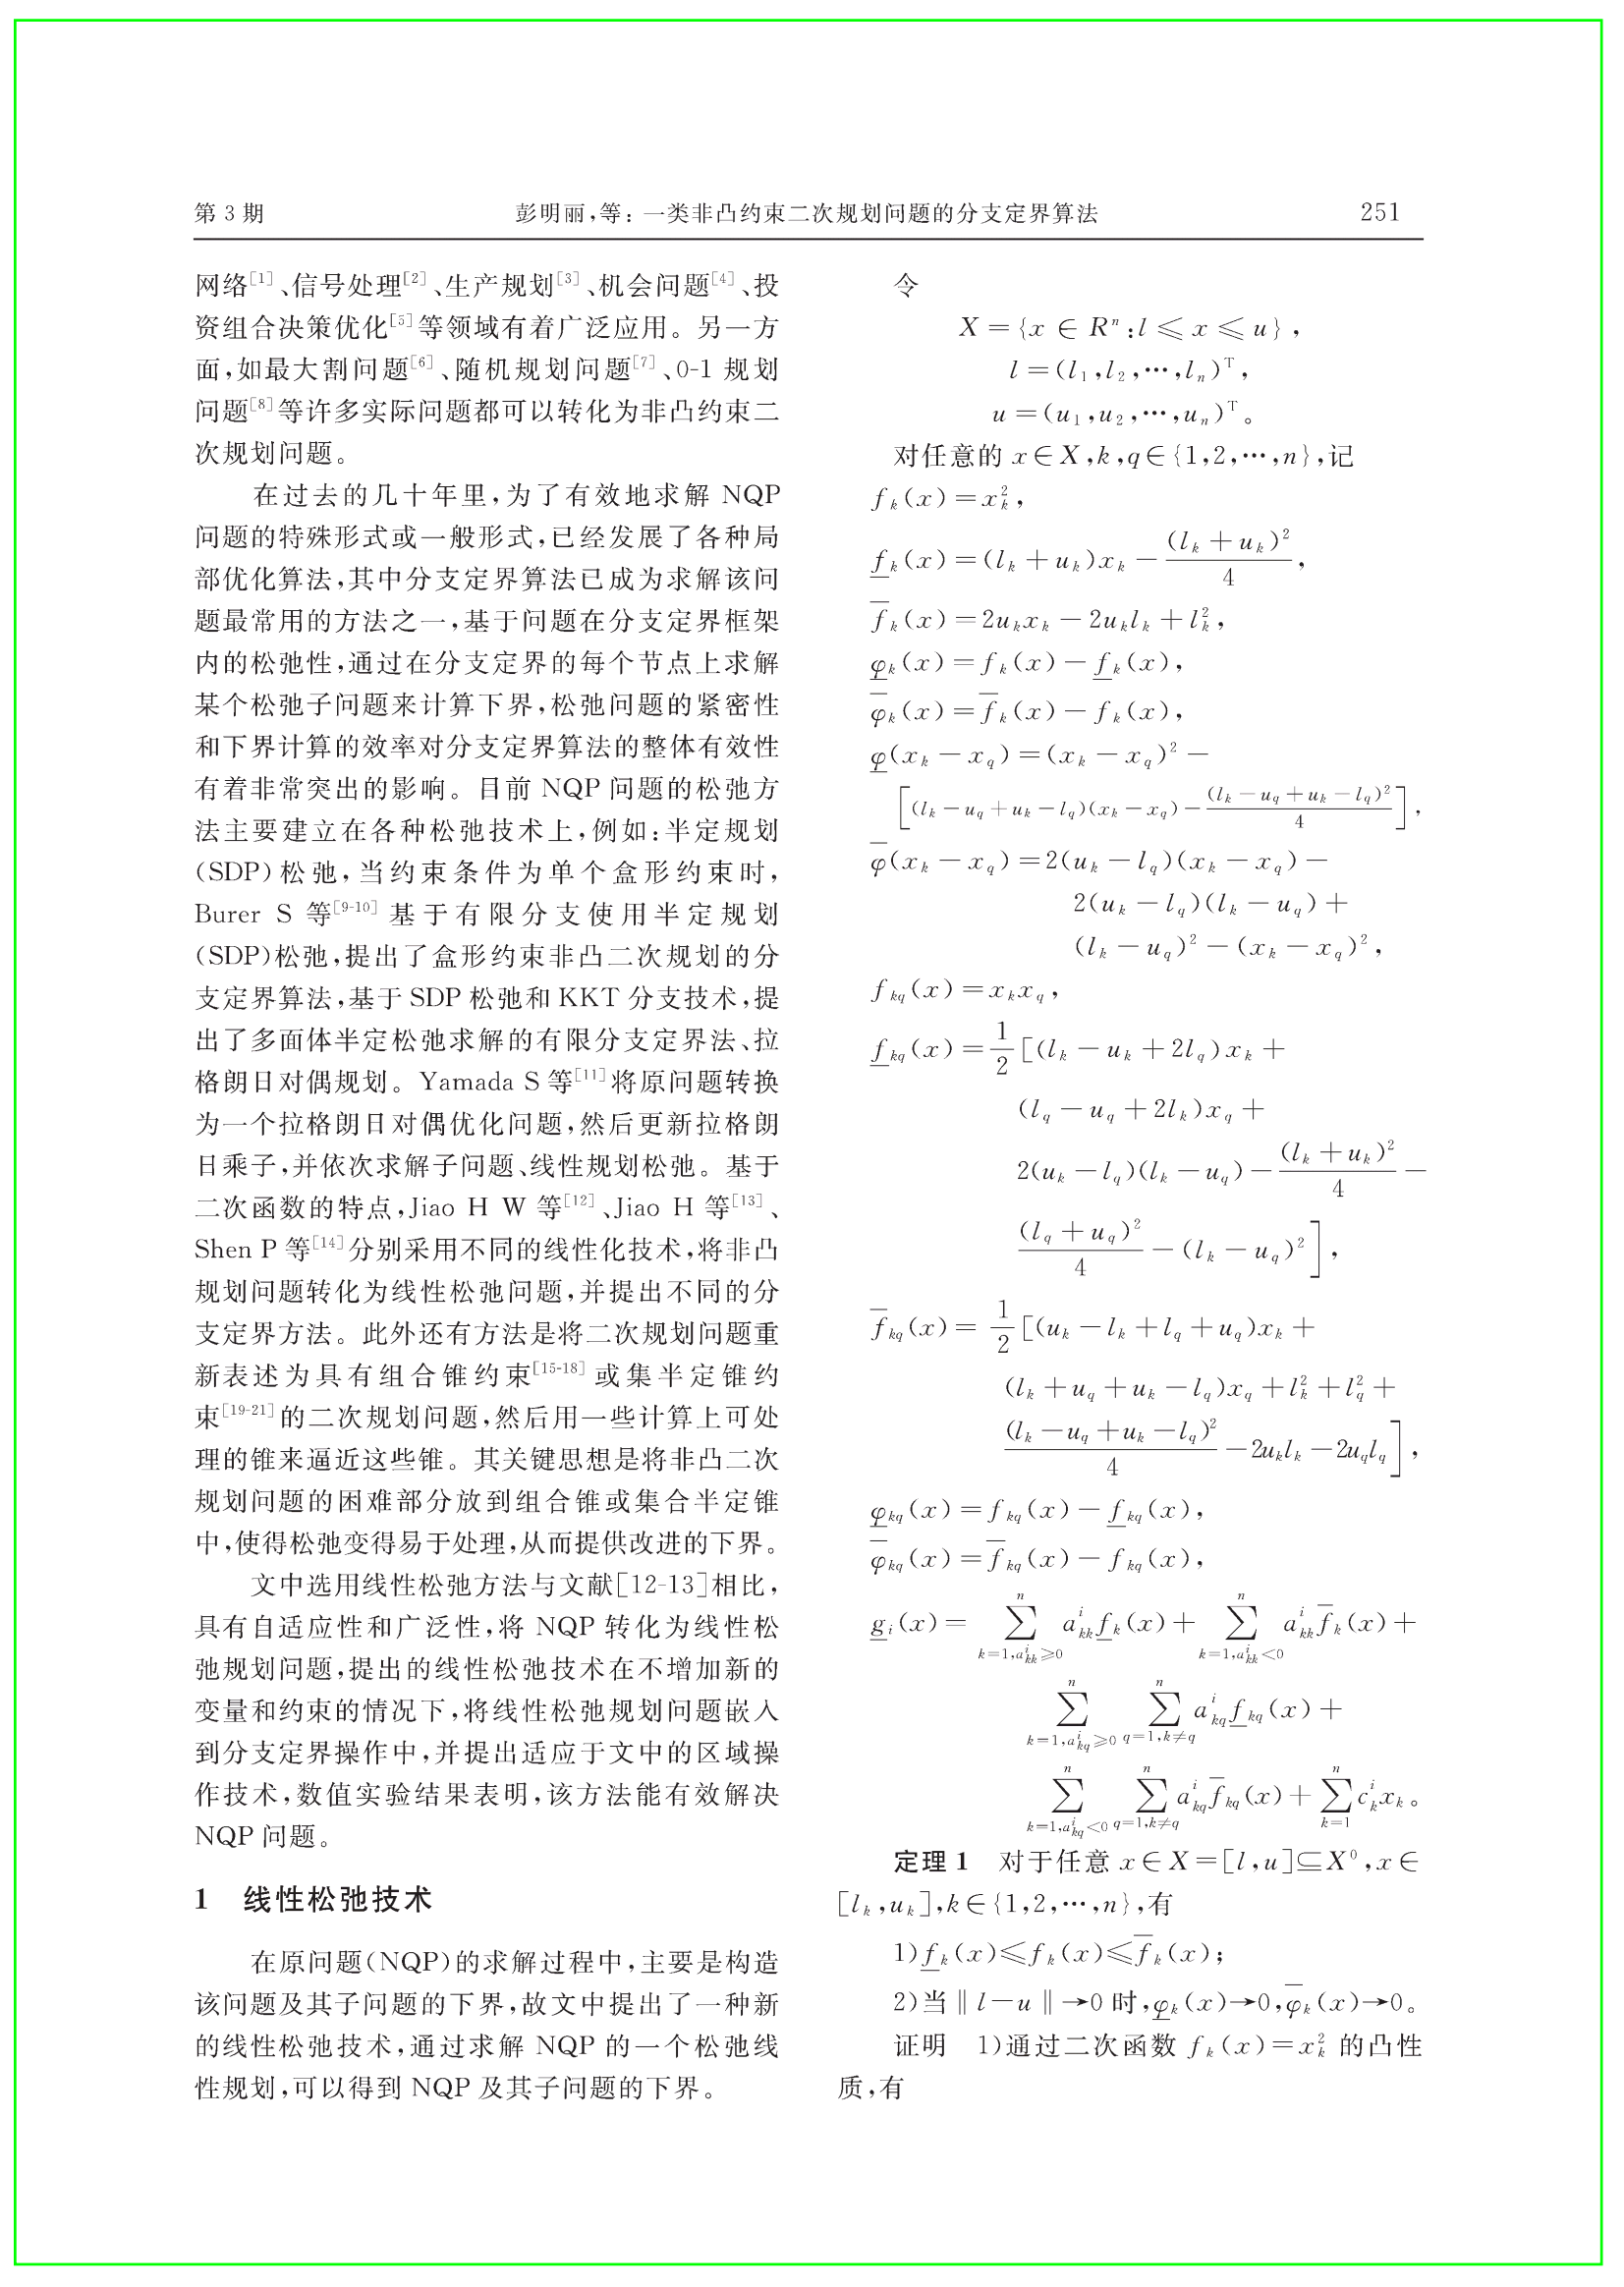 第 3 期 彭明丽,等: 一类非凸约束二次规划问题的分支定界算法 251
网络[1]、信号处理[2]、生产规划[3]、机会问题[4]、投
资组合决策优化[5]等领域有着广泛应用。另一方
面,如最大割问题[6]、随机规划问题[7]、0-1 规划
问题[8]等许多实际问题都可以转化为非凸约束二
次规划问题。
在过去的几十年里,为了有效地求解 NQP
问题的特殊形式或一般形式,已经发展了各种局
部优化算法,其中分支定界算法已成为求解该问
题最常用的方法之一,基于问题在分支定界框架
内的松弛性,通过在分支定界的每个节点上求解
某个松弛子问题来计算下界,松弛问题的紧密性
和下界计算的效率对分支定界算法的整体有效性
有着非常突出的影响。目前 NQP 问题的松弛方
法主要建立在各种松弛技术上,例如:半定规划
(SDP)松弛,当约束条件为单个盒形约束时,
Burer S 等[9-10]基于有限分支使用半定规划
(SDP)松弛,提出了盒形约束非凸二次规划的分
支定界算法,基于 SDP 松弛和 KKT 分支技术,提
出了多面体半定松弛求解的有限分支定界法、拉
格朗日对偶规划。Yamada S 等[11]将原问题转换
为一个拉格朗日对偶优化问题,然后更新拉格朗
日乘子,并依次求解子问题、线性规划松弛。基于
二次函数的特点,Jiao H W 等[12]、Jiao H 等[13]、
Shen P 等[14]分别采用不同的线性化技术,将非凸
规划问题转化为线性松弛问题,并提出不同的分
支定界方法。此外还有方法是将二次规划问题重
新表述为具有组合锥约束[15-18]或集半定锥约
束[19-21]的二次规划问题,然后用一些计算上可处
理的锥来逼近这些锥。其关键思想是将非凸二次
规划问题的困难部分放到组合锥或集合半定锥
中,使得松弛变得易于处理,从而提供改进的下界。
文中选用线性松弛方法与文献[12-13]相比,
具有自适应性和广泛性,将 NQP 转化为线性松
弛规划问题,提出的线性松弛技术在不增加新的
变量和约束的情况下,将线性松弛规划问题嵌入
到分支定界操作中,并提出适应于文中的区域操
作技术,数值实验结果表明,该方法能有效解决
NQP 问题。
1 线性松弛技术
在原问题(NQP)的求解过程中,主要是构造
该问题及其子问题的下界,故文中提出了一种新
的线性松弛技术,通过求解 NQP 的一个松弛线
性规划,可以得到 NQP 及其子问题的下界。
令
$X=\{x\in R^n:l\leqslant x\leqslant u\}$,
$l=(l_1,l_2,\cdots,l_n)^T$,
$u=(u_1,u_2,\cdots,u_n)^T$。
对任意的 $x\in X,k,q\in\{1,2,\cdots,n\}$,记
$f_k(x)=x_k^2$,
$\underline{f}_k(x)=(l_k+u_k)x_k-\frac{(l_k+u_k)^2}{4}$,
$\overline{f}_k(x)=2u_kx_k-2u_kl_k+l_k^2$,
$\underline{\varphi}_k(x)=f_k(x)-\underline{f}_k(x)$,
$\overline{\varphi}_k(x)=\overline{f}_k(x)-f_k(x)$,
$\underline{\varphi}(x_k-x_q)=(x_k-x_q)^2-$
$\left[(l_k-u_q+u_k-l_q)(x_k-x_q)-\frac{(l_k-u_q+u_k-l_q)^2}{4}\right]$,
$\overline{\varphi}(x_k-x_q)=2(u_k-l_q)(x_k-x_q)-$
$2(u_k-l_q)(l_k-u_q)+$
$(l_k-u_q)^2-(x_k-x_q)^2$,
$f_{kq}(x)=x_kx_q$,
$\underline{f}_{kq}(x)=\frac{1}{2}[(l_k-u_k+2l_q)x_k+$
$(l_q-u_q+2l_k)x_q+$
$2(u_k-l_q)(l_k-u_q)-\frac{(l_k+u_k)^2}{4}-$
$\frac{(l_q+u_q)^2}{4}-(l_k-u_q)^2]$,
$\overline{f}_{kq}(x)=\frac{1}{2}[(u_k-l_k+l_q+u_q)x_k+$
$(l_k+u_q+u_k-l_q)x_q+l_k^2+l_q^2+$
$\frac{(l_k-u_q+u_k-l_q)^2}{4}-2u_kl_k-2u_ql_q]$,
$\underline{\varphi}_{kq}(x)=f_{kq}(x)-\underline{f}_{kq}(x)$,
$\overline{\varphi}_{kq}(x)=\overline{f}_{kq}(x)-f_{kq}(x)$,
$\underline{g}_i(x)=\sum_{k=1,a_{kk}^i\geqslant 0}^{n}a_{kk}^i\underline{f}_k(x)+\sum_{k=1,a_{kk}^i<0}^{n}a_{kk}^i\overline{f}_k(x)+$
$\sum_{k=1,a_{kq}^i\geqslant 0}^{n}\sum_{q=1,k\neq q}^{n}a_{kq}^i\underline{f}_{kq}(x)+$
$\sum_{k=1,a_{kq}^i<0}^{n}\sum_{q=1,k\neq q}^{n}a_{kq}^i\overline{f}_{kq}(x)+\sum_{k=1}^{n}c_k^ix_k$。
定理 1 对于任意 $x\in X=[l,u]\subseteq X^0,x\in$
$[l_k,u_k],k\in\{1,2,\cdots,n\}$,有
1)$\underline{f}_k(x)\leqslant f_k(x)\leqslant\overline{f}_k(x)$;
2)当 $\|l-u\|\to 0$ 时,$\underline{\varphi}_k(x)\to 0,\overline{\varphi}_k(x)\to 0$。
证明 1)通过二次函数 $f_k(x)=x_k^2$ 的凸性
质,有